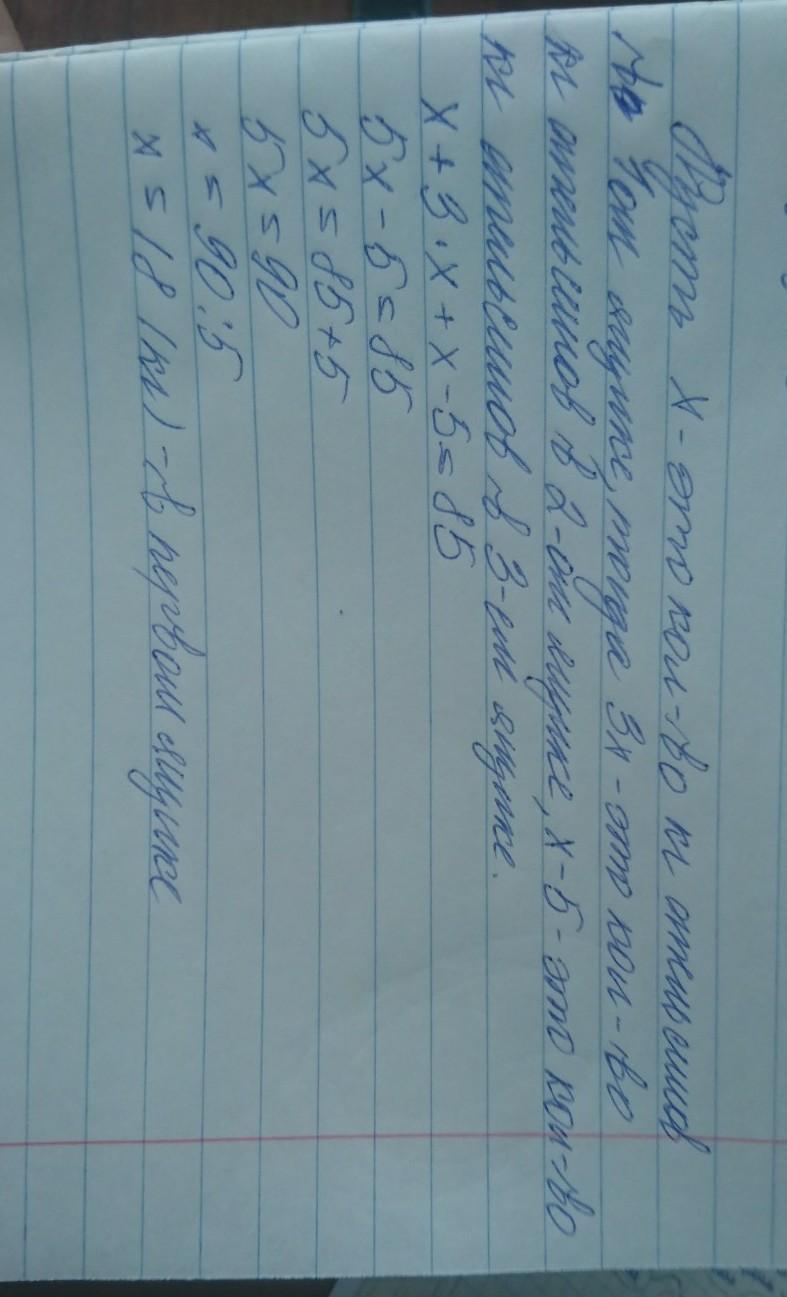 Пусть х - это кол-во кг апельсинов
в 1-ом ящике, тогда 3х - это кол-во
кг апельсинов в 2-ом ящике, х - 5 - это кол-во
кг апельсинов в 3-ем ящике.
х + 3 · х + х - 5 = 85
5х - 5 = 85
5х = 85 + 5
5х = 90
х = 90 : 5
х = 18 (кг) - в первом ящике